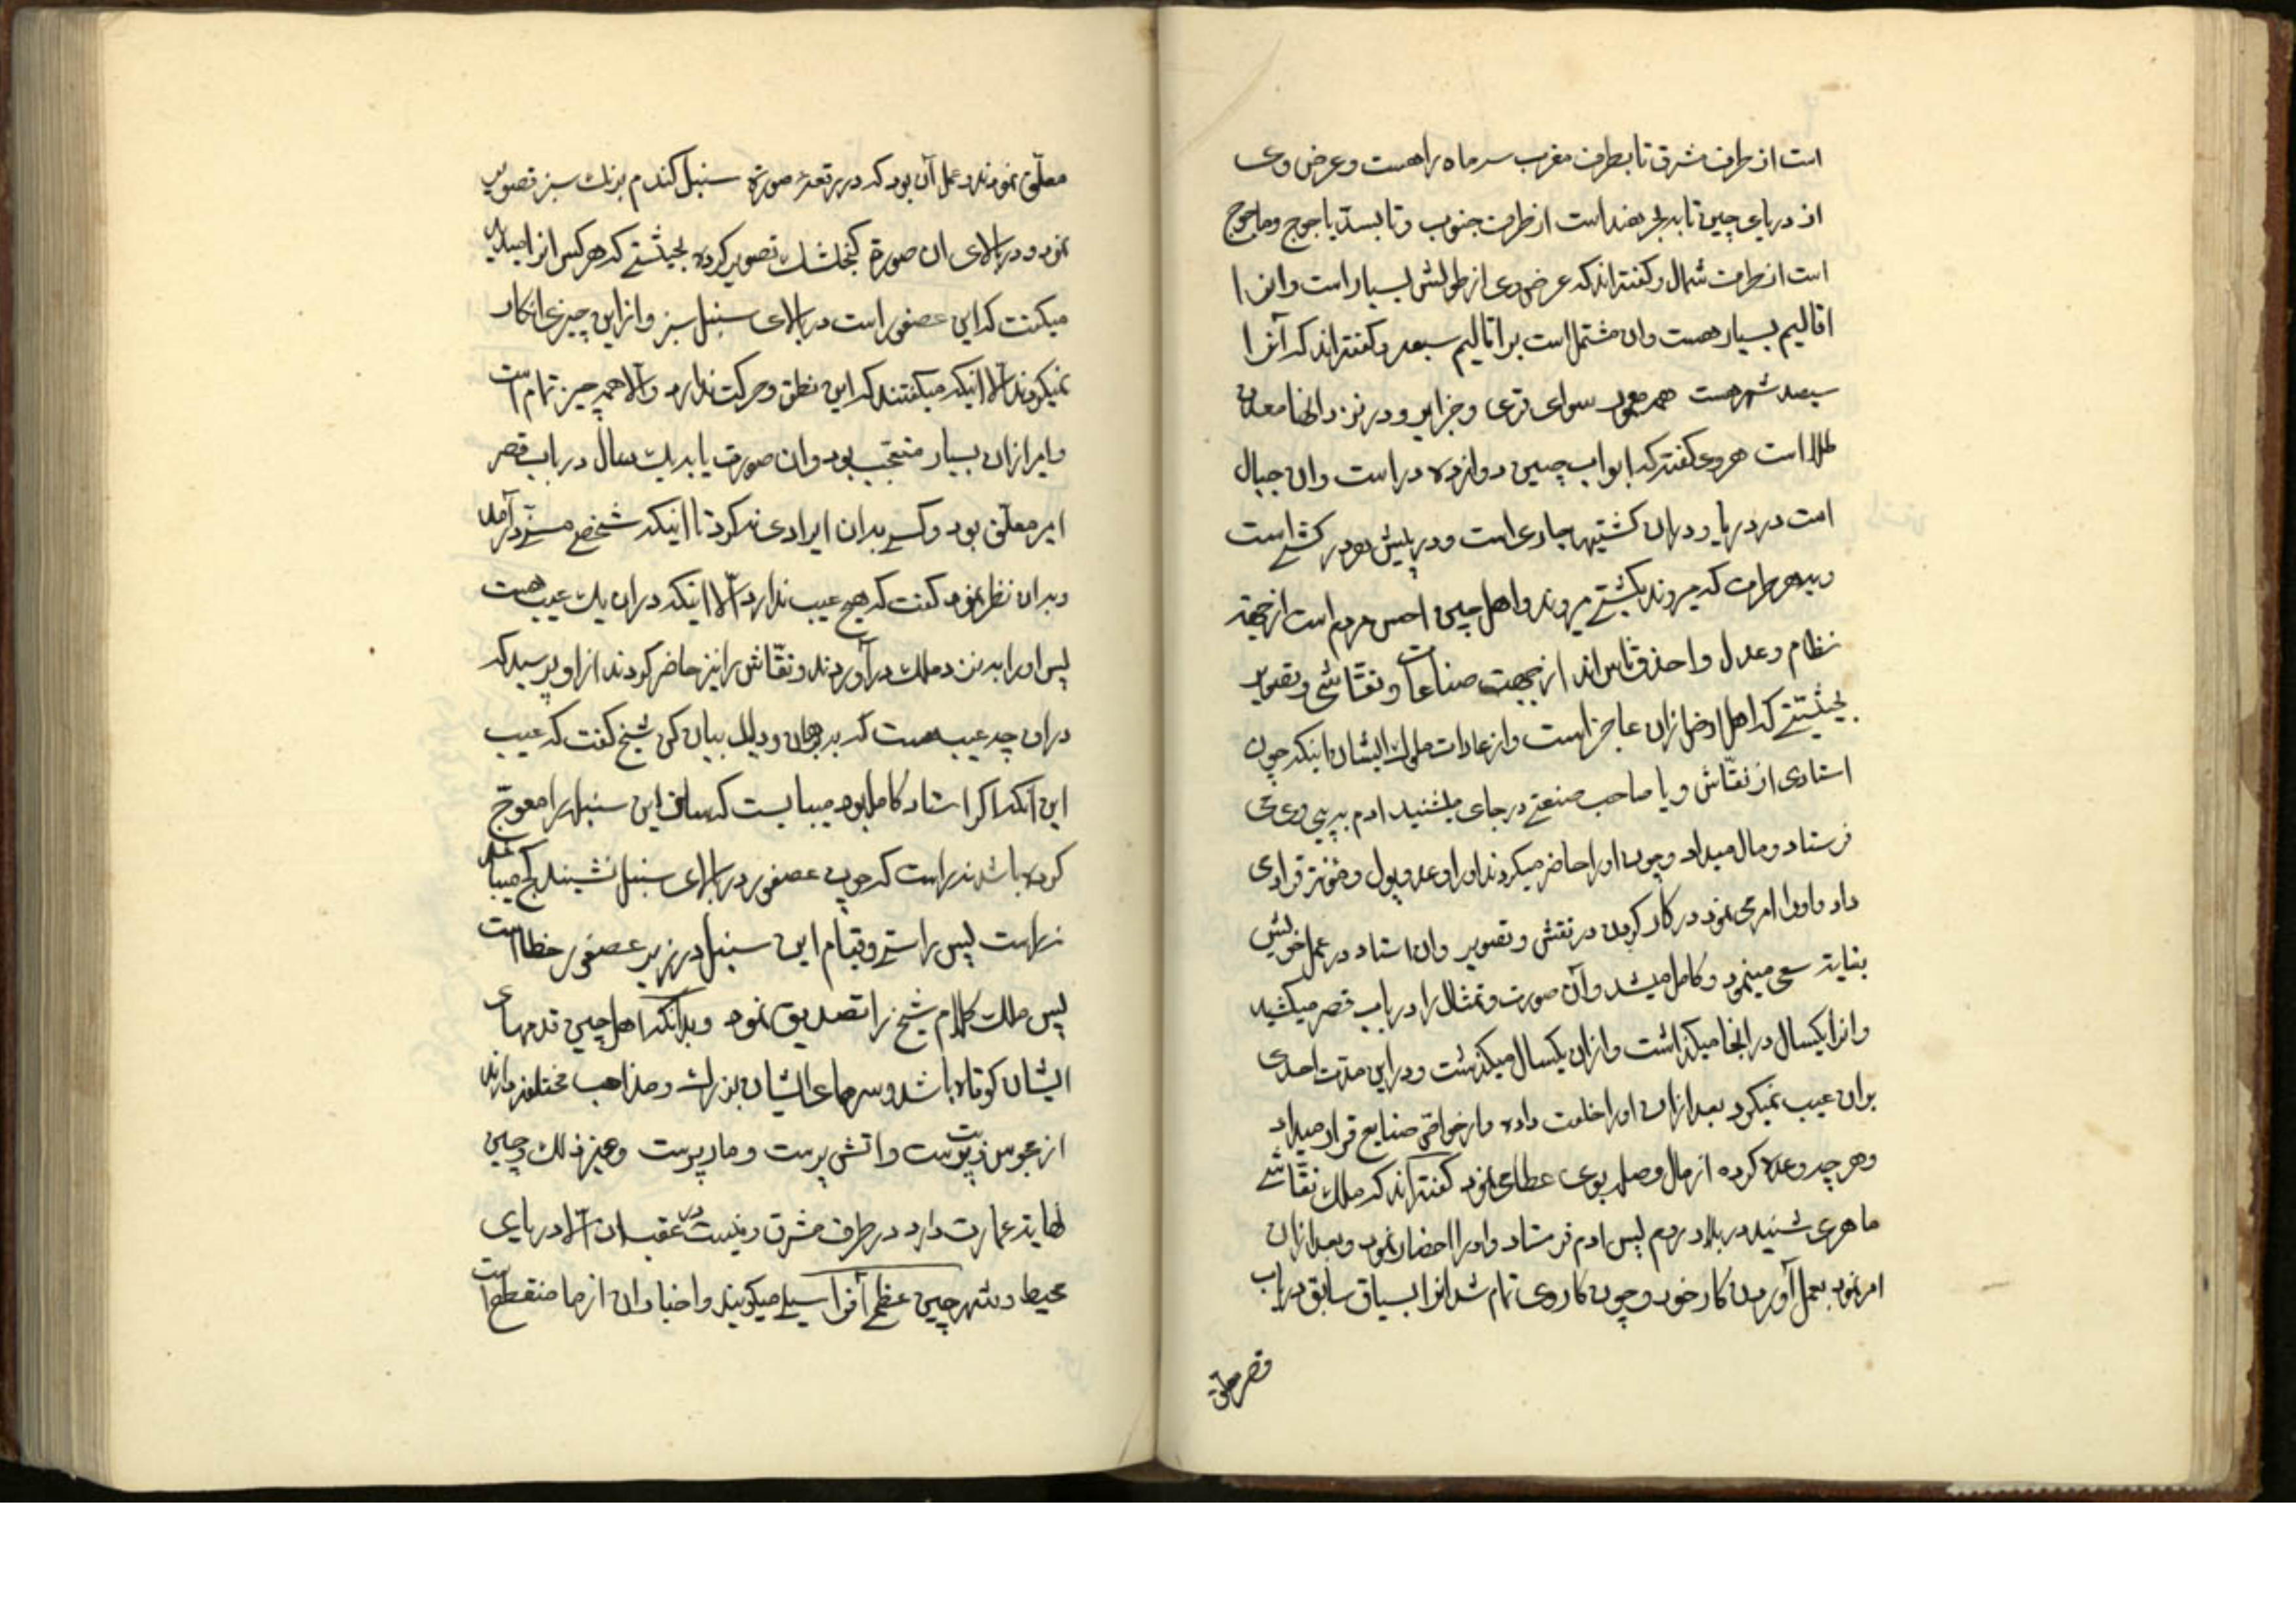 است از طرف مشرق تا بطرف مغرب سر ماه راهست و عرض وی
از دریای چین تا بدبحر هند است از طرف جنوب و تا بسدّ یاجوج و ماجوج
است از طرف شمال و کفته‌اند که عرض وی از طولش بسیار است و این را
اقالیم بسیار هست وان مشتمل است بر اقالیم سبعه و کفته‌اند که آنرا
سیصد شهر هست همه معمور سوای قری و جزایر و در نزد انها معدن
طلا است هروی کفته که ابواب چین دوازده در است وان جبال
است در دریا و در ان کشتیها جاری است و در پیش هر در کشتی است
و بهر طرف که میروند بکشتی میروند و اهل چین احسن مردم است از جهة
نظام و عدل و احذق ناس‌اند از جهت صناعات و نقّاشی و تصویر
بحیثیتی که اهل ارض از ان عاجز است و از عادات ملوک ایشان اینکه چون
استادی از نقّاش و یا صاحب صنعتی در جای میشنید ادم به پی وی می
فرستاد و مال میداد و چون او را حاضر میکردند او را وعده پول و مؤنة قراری
داد و او را امر می نمود در کار کردن در نقش و تصویر وان استاد در عمل خویش
بغایة سعی مینمود و کامل میشد و آن صورت و تمثال را در باب قصر میکشید
و انرا یکسال در انجا میکذاشت و از ان یکسال میکذشت و در این مدت احدی
بر ان عیب نمیکرد بعد از ان او را خلعت داده و از خواصّ صنایع قرار میداد
و هر چه وعده کرده از مال و صله بوی عطا می نمود کفته‌اند که ملک نقّاشی
ماهری شنید در بلاد روم پس ادم فرستاد و او را احضار نمود و بعد از ان
امر نمود بعمل آوردن کار خود و چون کار وی تمام شد انرا بسیاق سابق در باب
قصر معلّق
معلّق نمودند و عمل آن بود که در رقعهٔ صورة سنبل کندم برنک سبز تصویر
نمود و در بالای ان صورة کنجشک تصویر کرده بحیثیتی که هر کس انرا میدید
میکفت که این عصفور است در بالای سنبل سبز و از این چیزی انکار
نمیکردند الّا انیکه میکفتند که این نطق و حرکت ندارد و الّا همه چیز تمام است
و امر از ان بسیار متعجب بود وان صورت یابد یک سال در باب قصر
امیر معلّق بود و کسی بدان ایرادی نکرد تا اینکه شخص مسنّی در آمد
و بدان نظر نمود کفت که هیچ عیب ندارد الّا اینکه در ان یک عیب هست
پس او را به نزد ملک در آوردند و نقّاش را نیز حاضر کردند از او پرسید که
در ان چه عیب هست که به برهان و دلیل بیان کن شیخ کفت که عیب
این آنکه اکر استاد کامل بود میبایست که ساق این سنبل را معوّج
کرده باشد نه راست که چون عصفور در بالای سنبل نشیند کج میباشد
نه راست پس راستی و قیام این سنبل در زیر عصفور خطا است
پس ملک کلام شیخ را تصدیق نمود و بدانکه اهل چین قدمهای
ایشان کوتاه باشد و سرهای ایشان بزرک و مذاهب مختلفه دارند
از مجوس و بت پرست و اتش پرست و مار پرست و غیر ذلک و چین
نهایة عمارت دارد در طرف مشرق و نیست در عقب ان الّا دریای
محیط و شهر چین عظمی آنرا سیلی میکویند و اخبار ان از ما منقطع است